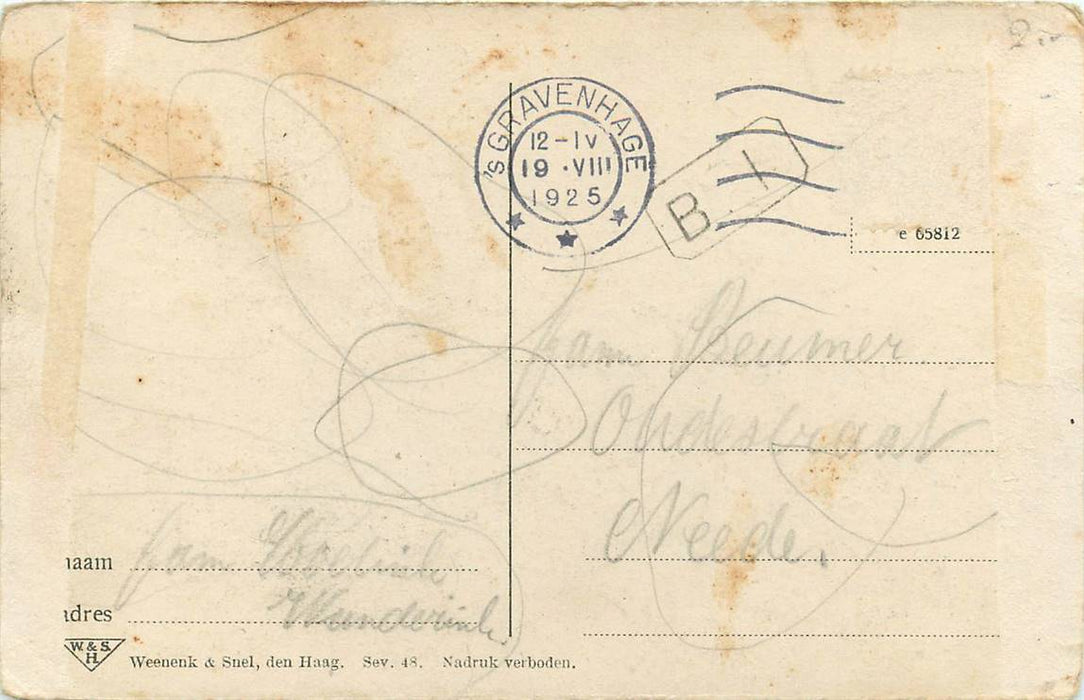 'S GRAVENHAGE
12-IV
19 ·VIII
1925
B I
e 65812
fam
Oudestraat
Neede.
naam fam
adres Wanderink
W.&S.
H
Weenenk & Snel, den Haag. Sev. 48. Nadruk verboden.